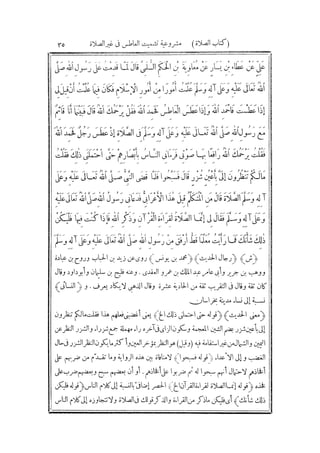 (كتاب الصلاة) مشروعية تشميت العاطس فى غير الصلاة ٣٥
عَلِيٍّ عَنْ عَطَاءِ بْنِ يَسَارٍ عَنْ مُعَاوِيَةَ بْنِ الْحَكَمِ السُّلَمِيِّ قَالَ لَمَّا قَدِمْتُ عَلَى رَسُولِ اللهِ صَلَّى
اللهُ تَعَالَى عَلَيْهِ وَعَلَى آلِهِ وَسَلَّمَ عُلِّمْتُ أُمُورًا مِنْ أُمُورِ الْإِسْلَامِ فَكَانَ فِيمَا عُلِّمْتُ أَنْ قِيلَ لِي
إِذَا عَطَسْتَ فَاحْمَدِ اللهَ وَإِذَا عَطَسَ الْعَاطِسُ فَحَمِدَ اللهَ فَقُلْ يَرْحَمُكَ اللهُ قَالَ فَبَيْنَمَا أَنَا قَائِمٌ
مَعَ رَسُولِ اللهِ صَلَّى اللهُ تَعَالَى عَلَيْهِ وَعَلَى آلِهِ وَسَلَّمَ فِي الصَّلَاةِ إِذْ عَطَسَ رَجُلٌ فَحَمِدَ اللهَ
فَقُلْتُ يَرْحَمُكَ اللهُ رَافِعًا بِهَا صَوْتِي فَرَمَانِي النَّاسُ بِأَبْصَارِهِمْ حَتَّى احْتَمَلَنِي ذَلِكَ فَقُلْتُ
مَا لَكُمْ تَنْظُرُونَ إِلَيَّ بِأَعْيُنٍ شُزْرٍ قَالَ فَسَبَّحُوا فَلَمَّا قَضَى النَّبِيُّ صَلَّى اللهُ تَعَالَى عَلَيْهِ وَعَلَى
آلِهِ وَسَلَّمَ الصَّلَاةَ قَالَ مَنِ الْمُتَكَلِّمُ قِيلَ هَذَا الْأَعْرَابِيُّ فَدَعَانِي رَسُولُ اللهِ صَلَّى اللهُ تَعَالَى عَلَيْهِ
وَعَلَى آلِهِ وَسَلَّمَ فَقَالَ لِي إِنَّمَا الصَّلَاةُ لِقِرَاءَةِ الْقُرْآنِ وَذِكْرِ اللهِ فَإِذَا كُنْتَ فِيهَا فَلْيَكُنْ
ذَلِكَ شَأْنَكَ فَمَا رَأَيْتُ مُعَلِّمًا قَطُّ أَرْفَقَ مِنْ رَسُولِ اللهِ صَلَّى اللهُ تَعَالَى عَلَيْهِ وَعَلَى آلِهِ وَسَلَّمَ
(ش) (رجال الحديث) (محمد بن يونس) روى عن زيد بن الحباب وروح بن عبادة
ووهب بن جرير وأبى عامر عبد الملك بن عمرو العقدى. وعنه فليح بن سليمان وأبو داود وقال
كان ثقة وقال فى التقريب ثقة من الحادية عشرة وقال الذهبى لا يكاد يعرف. و (النسائى)
نسبة إلى نسا، مدينة بخراسان
(معنى الحديث) (قوله حتى احتملنى ذلك الخ) يعنى أغضبنى فعلهم هذا فقلت مالكم تنظرون
إلى بأعين شزر بضم الشين المعجمة وسكون الزاى فى آخره راء مهملة جمع شزراء والشزر النظر عن
اليمين والشمال من غير استقامة فيه (وقيل) هو النظر بمؤخر العين وأكثر ما يكون النظر الشزر فى حال
الغضب وإلى الأعداء. (قوله فسبحوا) لا منافاة بين هذه الرواية وما تقدم من ضربهم على
أفخاذهم لاحتمال أنهم سبحوا له ثم ضربوا على أفخاذهم. أو أن بعضهم سبح وبعضهم ضرب على
فخذه (قوله إنما الصلاة لقراءة القرآن الخ) الحصر إضافى بالنسبة إلى كلام الناس (قوله فليكن
ذلك شأنك) أى فليكن ماذكر من القراءة والذكر قولك فى الصلاة ولا تتجاوزه إلى كلام الناس